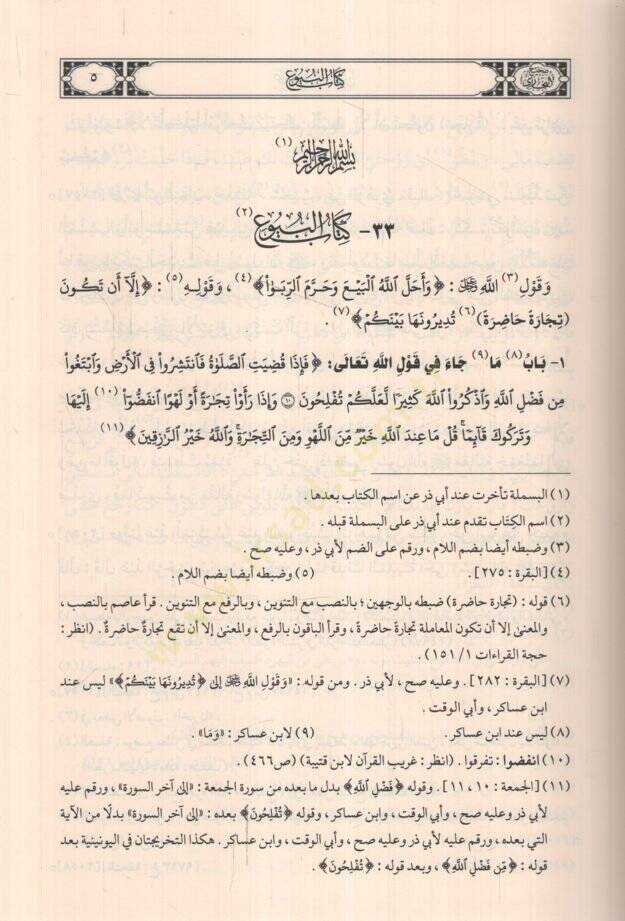 ٥
كتاب البيوع
صحيح البخاري
بسم الله الرحمن الرحيم (١)
٣٣- كتاب البيوع (٢)
وَقَوْلِ (٣) اللَّهِ ﷻ : ﴿وَأَحَلَّ ٱللَّهُ ٱلْبَيْعَ وَحَرَّمَ ٱلرِّبَوٰا۟﴾ (٤) ، وَقَوْلِهِ (٥) : ﴿إِلَّآ أَن تَكُونَ
(تِجَارَةً حَاضِرَةً) (٦) تُدِيرُونَهَا بَيْنَكُمْ﴾ (٧)
١- بَابُ (٨) مَا (٩) جَاءَ فِي قَوْلِ اللَّهِ تَعَالَى : ﴿فَإِذَا قُضِيَتِ ٱلصَّلَوٰةُ فَٱنتَشِرُوا۟ فِى ٱلْأَرْضِ وَٱبْتَغُوا۟
مِن فَضْلِ ٱللَّهِ وَٱذْكُرُوا۟ ٱللَّهَ كَثِيرًا لَّعَلَّكُمْ تُفْلِحُونَ ۝١٠ وَإِذَا رَأَوْا۟ تِجَٰرَةً أَوْ لَهْوًا ٱنفَضُّوٓا۟ (١٠) إِلَيْهَا
وَتَرَكُوكَ قَآئِمًا ۚ قُلْ مَا عِندَ ٱللَّهِ خَيْرٌ مِّنَ ٱللَّهْوِ وَمِنَ ٱلتِّجَٰرَةِ ۚ وَٱللَّهُ خَيْرُ ٱلرَّٰزِقِينَ﴾ (١١)
(١) البسملة تأخرت عند أبي ذر عن اسم الكتاب بعدها .
(٢) اسم الكِتَاب تقدم عند أبي ذر على البسملة قبله .
(٣) وضبطه أيضا بضم اللام ، ورقم على الضم لأبي ذر ، وعليه صح .
(٤) [البقرة : ٢٧٥] . (٥) وضبطه أيضا بضم اللام .
(٦) قوله : (تجارة حاضرة) ضبطه بالوجهين ؛ بالنصب مع التنوين ، وبالرفع مع التنوين . قرأ عاصم بالنصب ،
والمعنى إلا أن تكون المعاملة تجارةً حاضرةً ، وقرأ الباقون بالرفع ، والمعنى إلا أن تقع تجارةٌ حاضرةٌ . (انظر :
حجة القراءات ١/ ١٥١) .
(٧) [البقرة : ٢٨٢] . وعليه صح ، لأبي ذر . ومن قوله : «وَقَوْلِ اللَّهِ ﷻ إلى ﴿تُدِيرُونَهَا بَيْنَكُمْ﴾» ليس عند
ابن عساكر ، وأبي الوقت .
(٨) ليس عند ابن عساكر . (٩) لابن عساكر : «وَمَا» .
(١٠) انفضوا : تفرقوا . (انظر : غريب القرآن لابن قتيبة) (ص٤٦٦) .
(١١) [الجمعة : ١٠ ، ١١] . وقوله ﴿فَضْلِ ٱللَّهِ﴾ بدل ما بعده من سورة الجمعة : «إلى آخر السورة» ، ورقم عليه
لأبي ذر وعليه صح ، وأبي الوقت ، وابن عساكر ، وقوله ﴿تُفْلِحُونَ﴾ بعده : «إلى آخر السورة» بدلًا من الآية
التي بعده ، ورقم عليه لأبي ذر وعليه صح ، وأبي الوقت ، وابن عساكر . هكذا التخريجتان في اليونينية بعد
قوله : ﴿مِّن فَضْلِ ٱللَّهِ﴾ ، وبعد قوله : ﴿تُفْلِحُونَ﴾ .